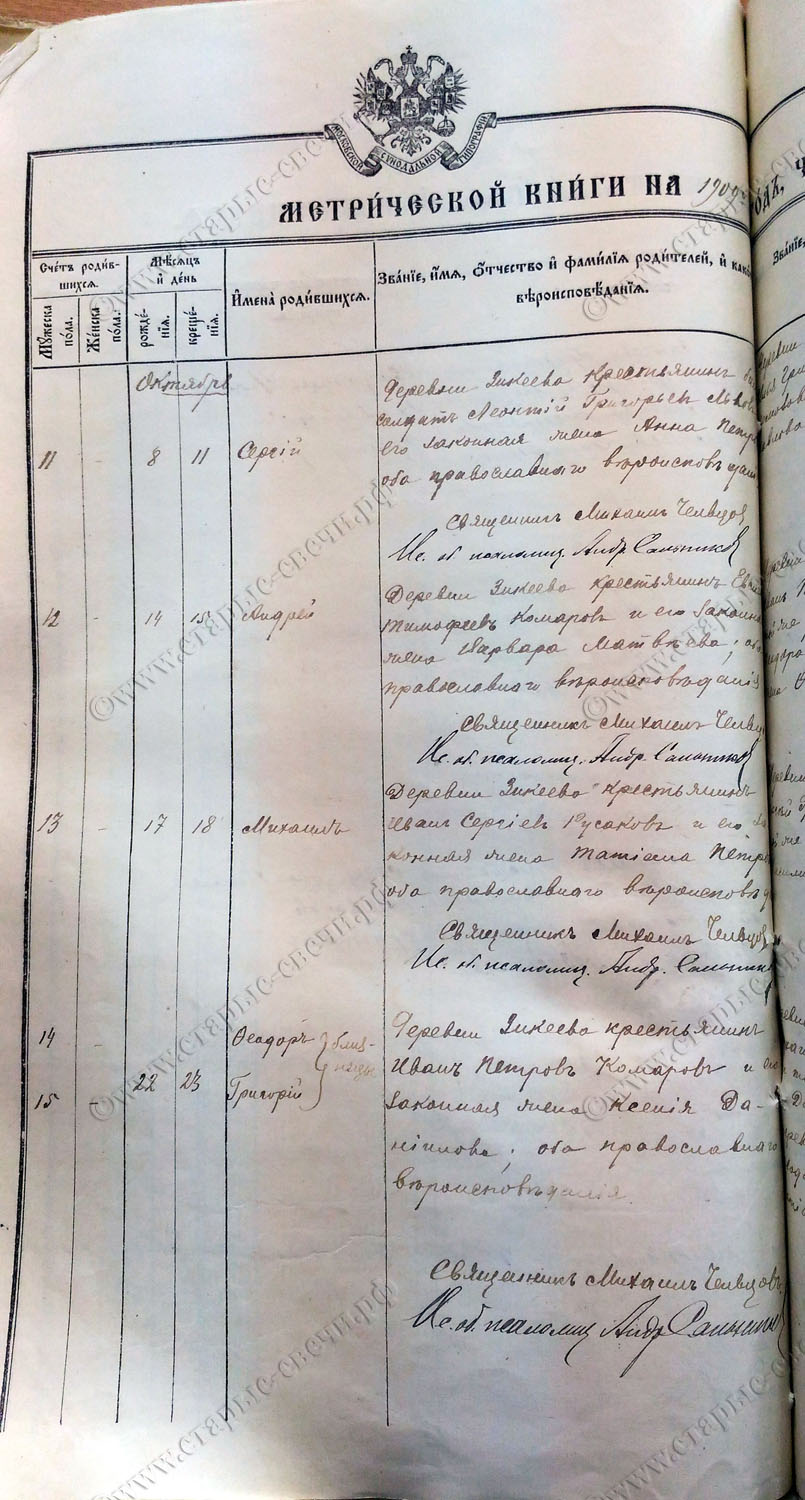 МОСКОВСКОЙ СѴНОДАЛЬНОЙ ТИПОГРАФІИ
МЕТРИ́ЧЕСКОЙ КНИ́ГИ НА 1909
Сче́тъ роди́в-
шихся.
Мѣ́сяцъ
и҆ де́нь
И҆мена̀ роди́вшихся.
Зва́нїе, и҆́мя, ѻ҆́тчество и҆ фами́лїя роди́телей, и҆ како
вѣроисповѣ́данїя.
Мꙋ́жеска
по́ла.
Же́нска
по́ла.
рожде́-
нїя.
креще́-
нїя.
Октябрь
11 - 8 11 Сергій
Деревни Зикеева крестьянинъ
солдатъ Леонтій Григорьевъ
его законная жена Анна Петр
оба православнаго вѣроисповѣдан
Священникъ Михаилъ Чельцов
Ис. об. псаломщ. Андр. Сальников
12 - 14 15 Андрей
Деревни Зикеева крестьянинъ
Тимофеевъ Комаровъ и его законн
жена Варвара Матвѣева; оба
православнаго вѣроисповѣданія
Священникъ Михаилъ Чельцо
Ис. об. псаломщ. Андр. Сальников
13 - 17 18 Михаилъ
Деревни Зикеева крестьянинъ
Иванъ Сергіевъ Русаковъ и его за
конная жена Татіана Петро
оба православнаго вѣроисповѣд
Священникъ Михаилъ Чельцов
Ис. об. псаломщ. Андр. Сальник
14 - Ѳеодоръ
близ-
нецы
15 - 22 23 Григорій
Деревни Зикеева крестьянинъ
Иванъ Петровъ Комаровъ и его
законная жена Ксенія Да-
ніилова; оба православнаго
вѣроисповѣданія.
Священникъ Михаилъ Чельцовъ
Ис. об. псаломщ. Андр. Сальников
©www.старыс-свсчи.рф